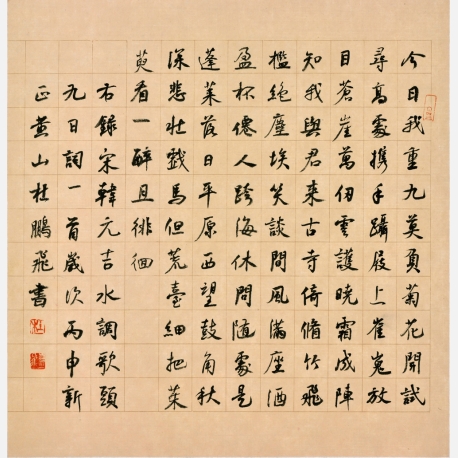 今日我重九莫負菊花開試
尋高處攜手躡屐上崔嵬放
目蒼崖萬仞雲護曉霜成陣
知我與君來古寺倚脩竹飛
檻絕塵埃笑談間風滿座酒
盈杯僊人跨海休問隨處是
蓬萊落日平原西望鼓角秋
深悲壯戲馬但荒臺細把茱
萸看一醉且徘徊
右錄宋韓元吉水調歌頭
九日詞一首歲次丙申新
正黄山杜鵬飛書